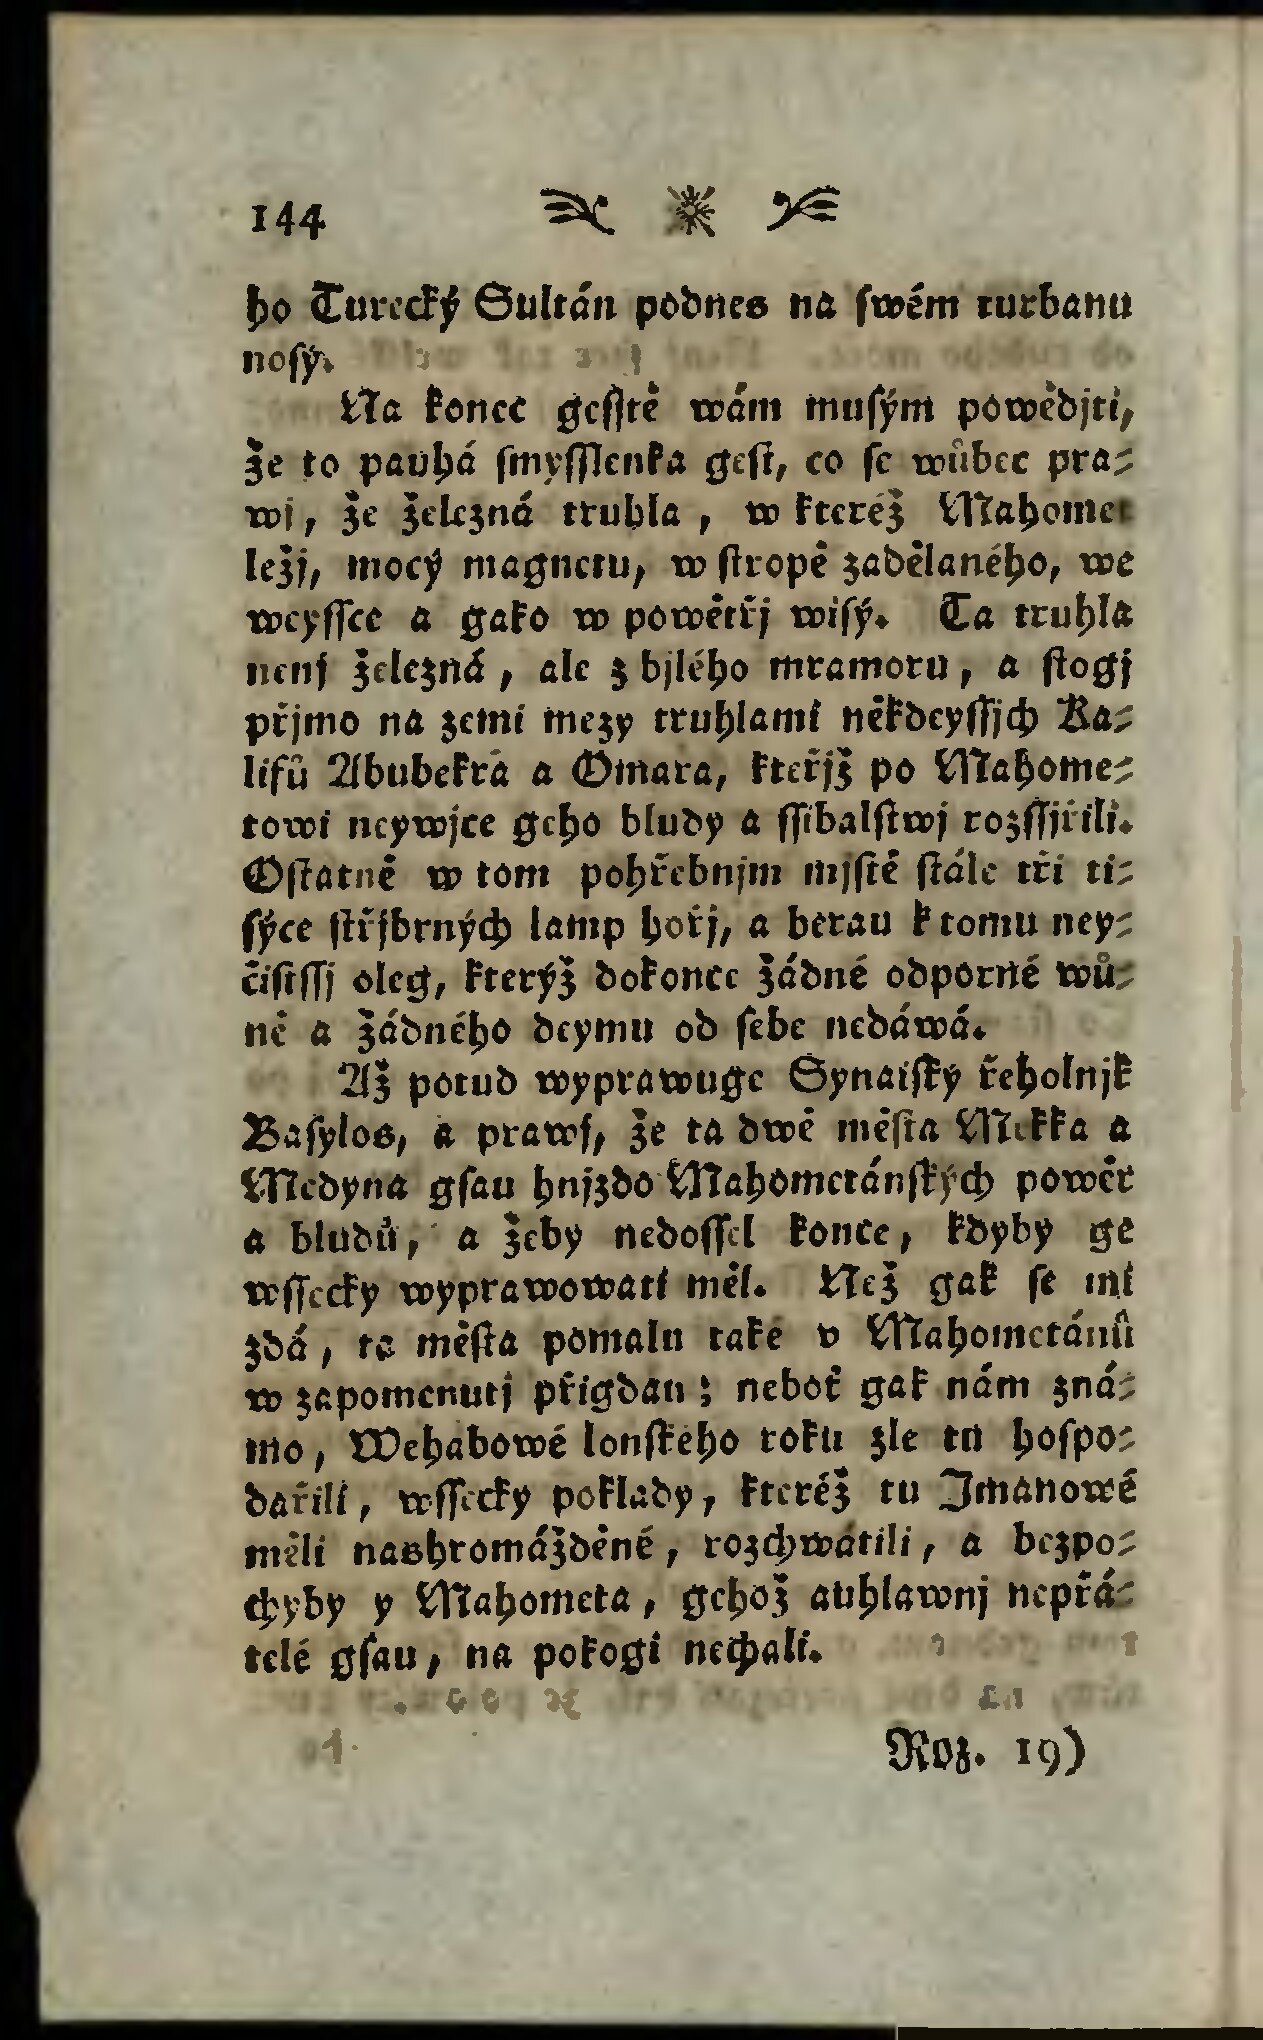 144
ho Turecký Sultán podnes na ſwém turbanu
noſý.
Na konec geſſtě wám muſým powědjti,
že to pauhá ſmyſſlenka geſt, co ſe wůbec pra⸗
wj, že železná truhla, w kteréž Mahomet
ležj, mocý magnetu, w ſtropě zadělaného, we
weyſſce a gako w powětřj wiſý. Ta truhla
nenj železná, ale z bjlého mramoru, a ſtogj
přjmo na zemi mezy truhlami někdeyſſjch Ka⸗
lifů Abubekra a Omara, kteřjž po Mahome⸗
towi neywjce geho bludy a ſſibalſtwj rozſſjřili.
Oſtatně w tom pohřebnjm mjſtě ſtále tři ti⸗
ſýce ſtřjbrných lamp hořj, a berau k tomu ney⸗
čiſtſſj oleg, kterýž dokonce žádné odporné wů⸗
ně a žádného deymu od ſebe nedáwá.
Až potud wyprawuge Synaiſký řeholnjk
Baſylos, a prawj, že ta dwě měſta Mekka a
Medyna gſau hnjzdo Mahometánſkých powěr
a bludů, a žeby nedoſſel konce, kdyby ge
wſſecky wyprawowati měl. Než gak ſe mi
zdá, ta měſta pomalu také v Mahometánů
w zapomenutj přigdau; neboť gak nám zná⸗
mo, Wehabowé lonſkého roku zle tu hoſpo⸗
dařili, wſſecky poklady, kteréž tu Jmanowé
měli nashromážděné, rozchwátili, a bezpo⸗
chyby y Mahometa, gehož auhlawnj nepřá⸗
telé gſau, na pokogi nechali.
Roz. 19)